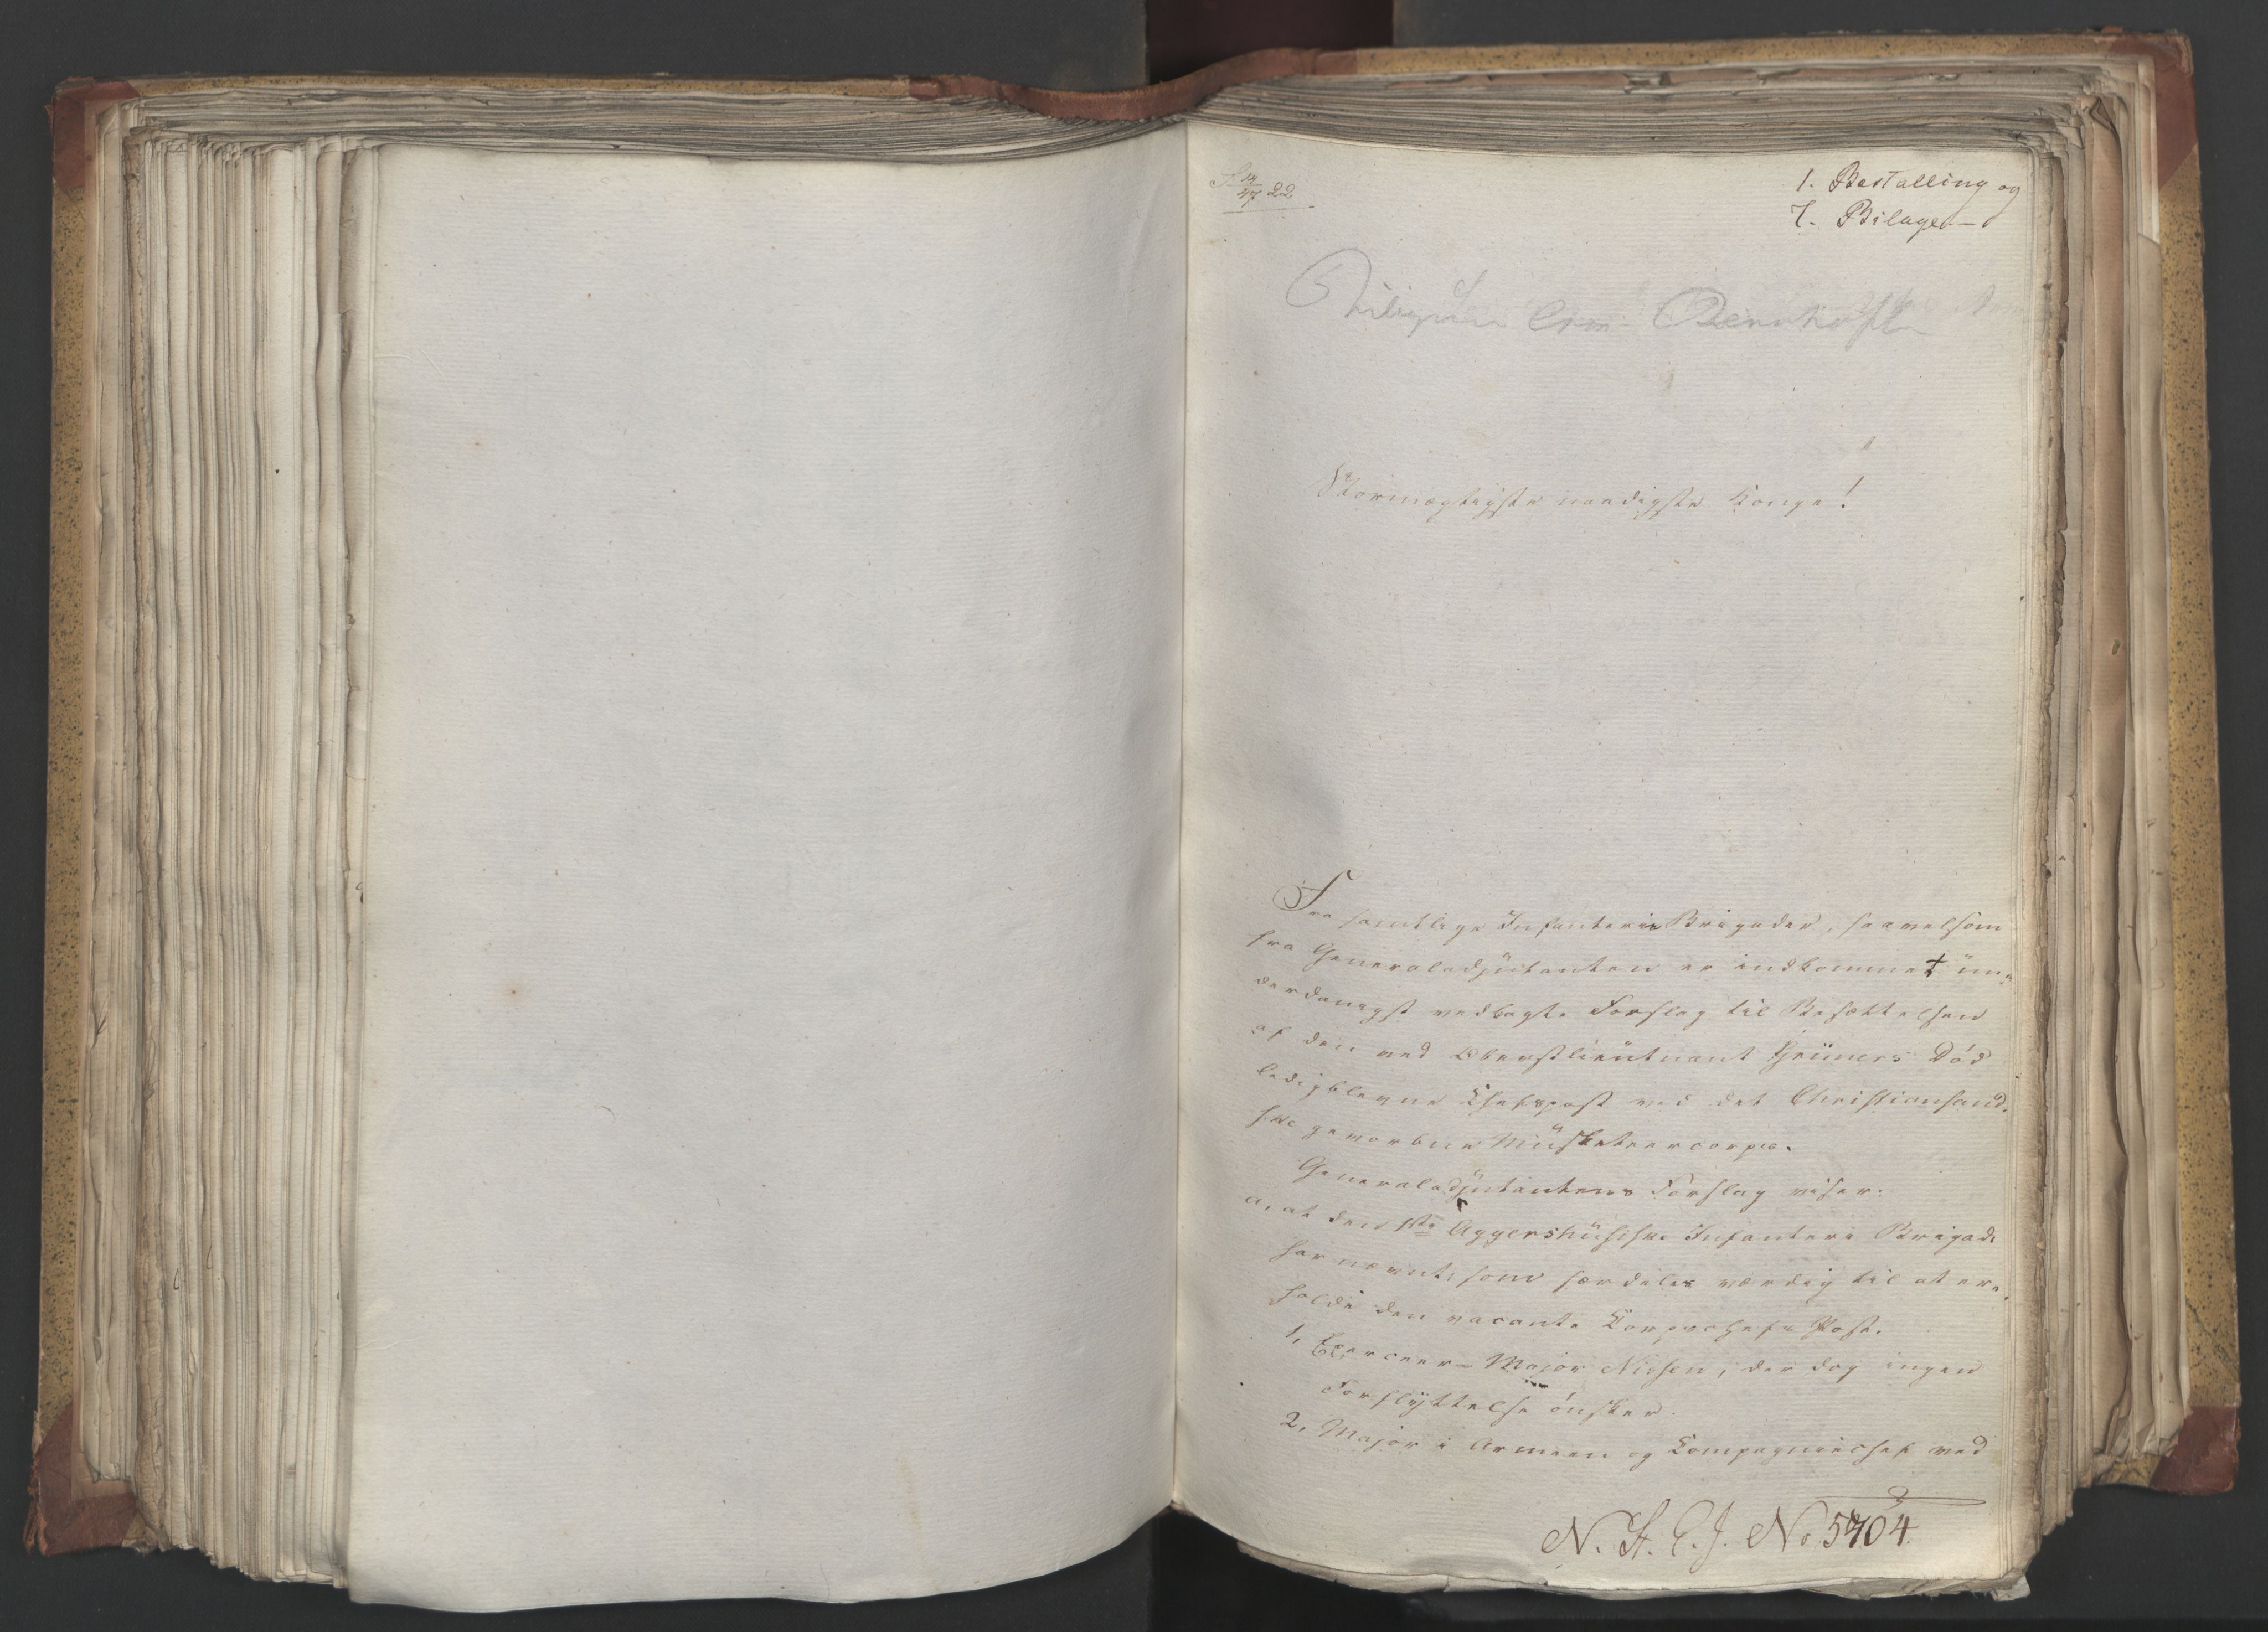 1. Bestalling og
7. Bilager
Stormægtigste naadigste Konge!
Fra samtlige Infanterie Brigader, saavelsom
fra Generaladjutanten er indkommet un-
derdanigst vedlagte Forslag til Besættelsen
af den ved Oberstlieutnant Grüners Död
ledigblevne Chefspost ved det Christiansand-
ske gevorbne Musketeercorps.
Generaladjutantens Forslag viser:
a, at den 1ste Aggershusiske Infanteri Brigade
har nævnt, som særdeles værdig til at er-
holde den vacante Corpschefs Post.
1, Exerceer-Major Nissen, der dog ingen
Forflyttelse önsker.
2, Major i Armeen og Compagniechef ved
N. H. C. J. No 5704.